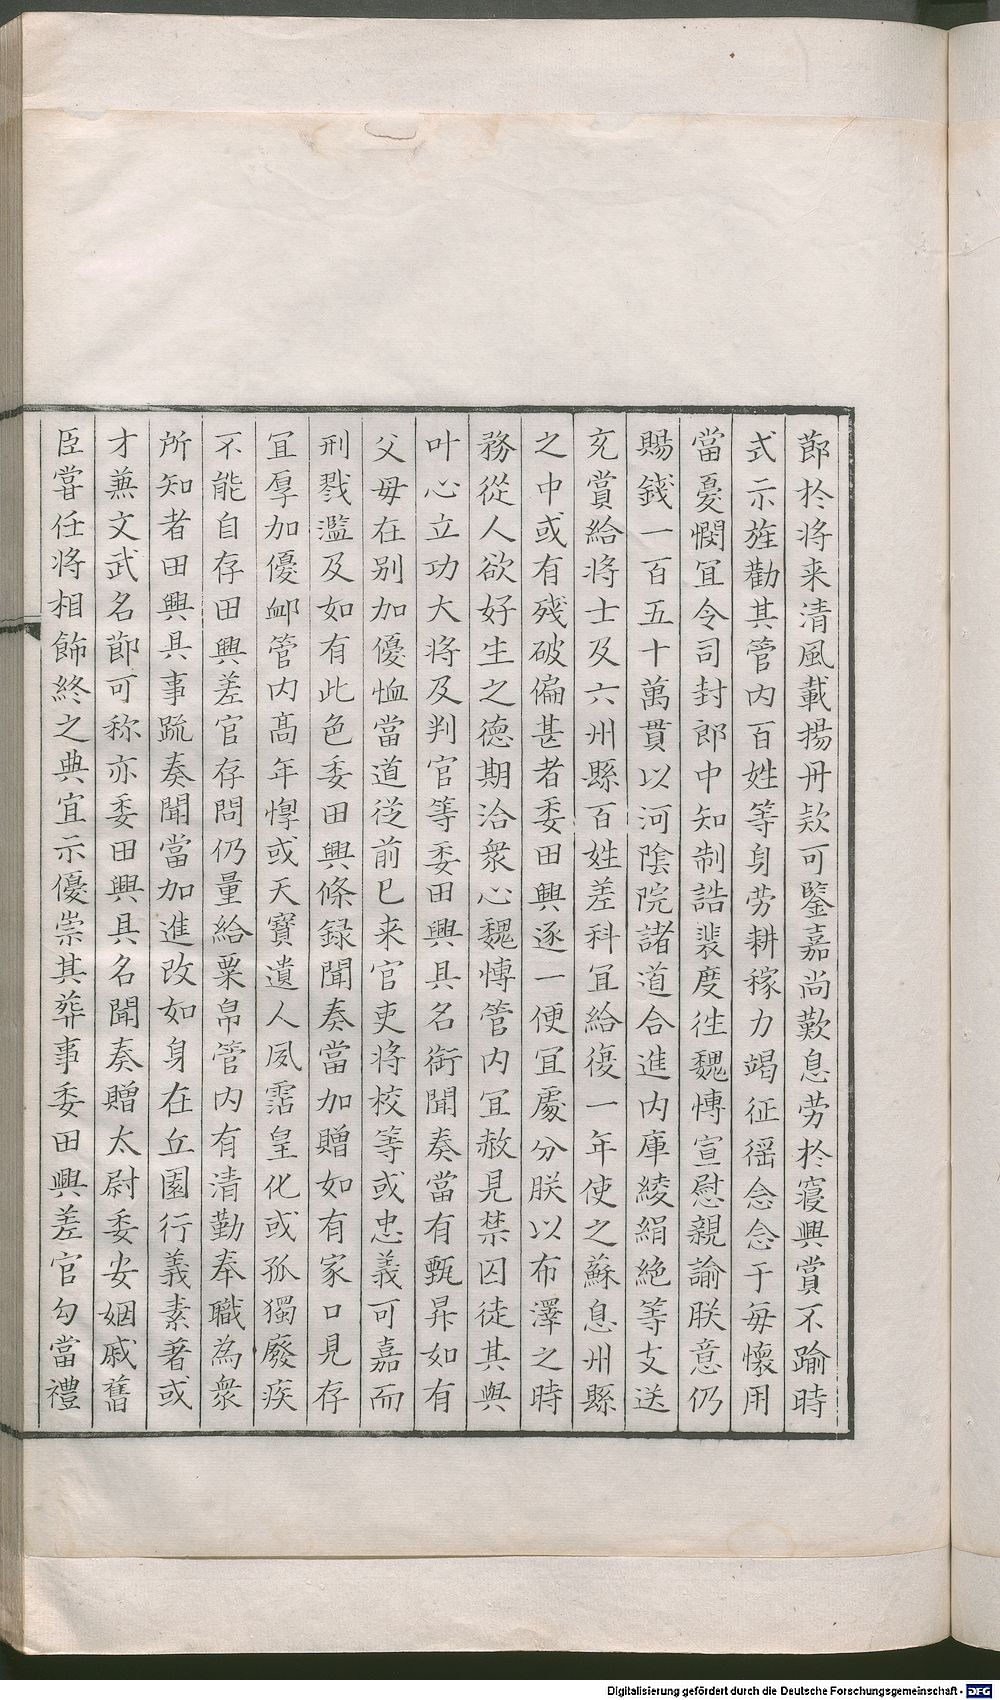 節於将来清風載揚丹欵可鑒嘉尚歎息勞於寢興賞不踰時
式示旌勸其管内百姓等身劳耕稼力竭征徭念念于每懷用
當憂憫冝令司封郎中知制誥裴度徃魏博宣慰親諭朕意仍
賜錢一百五十萬貫以河陰院諸道合進内庫綾絹絶等支送
充賞給將士及六州縣百姓差科冝給復一年使之蘇息州縣
之中或有殘破偏甚者委田興逐一便冝處分朕以布澤之時
務從人欲好生之德期洽衆心魏博管内冝赦見禁囚徒其與
叶心立功大將及判官等委田興具名銜聞奏當有甄昇如有
父母在别加優恤當道從前已来官吏將校等或忠義可嘉而
刑戮濫及如有此色委田興條録聞奏當加贈如有家口見存
冝厚加優衈管内高年惸或天寶遺人夙霑皇化或孤獨廢疾
不能自存田興差官存問仍量給粟帛管内有清勤奉職為衆
所知者田興具事䟽奏聞當加進改如身在丘園行義素著或
才兼文武名節可称亦委田興具名聞奏贈太尉委安姻戚舊
臣甞任将相飾終之典宜示優崇其葬事委田興差官勾當禮
Digitalisierung gefördert durch die Deutsche Forschungsgemeinschaft - DFG